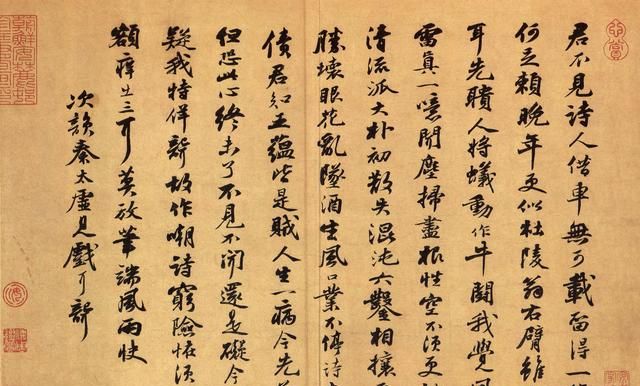 君不見詩人借車無可載留得一
何足賴晚年更似杜陵翁右臂雖
耳先聵人將蟻動作牛鬪我覺風
雷真一噫聞塵掃盡根性空不須更
清流派大朴初散失混沌六鑿相攘
勝壞眼花亂墜酒生風口業不停詩
債君知五蘊皆是賊人生一病今先
但恐此心終未了不見不聞還是礙今
疑我特佯聾故作嘲詩窮險怪須
額癢出三耳莫放筆端風雨快
次韻秦太虛見戲耳聾